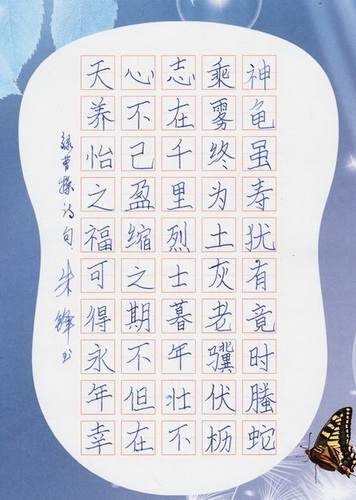 神龟虽寿犹有竟时螣蛇
乘雾终为土灰老骥伏枥
志在千里烈士暮年壮不
心不己盈缩之期不但在
天养怡之福可得永年幸
録曹操诗句 朱锋书